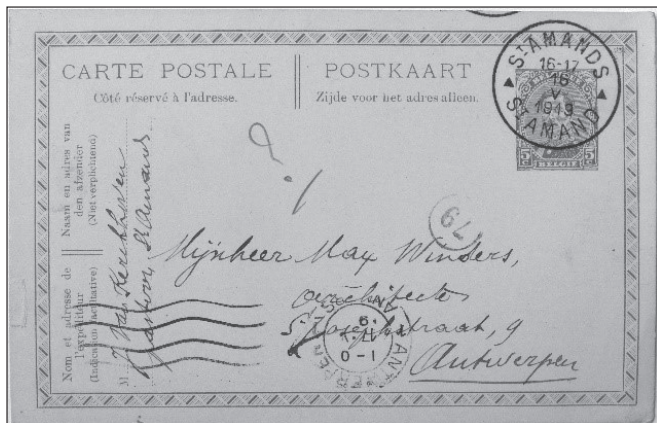 CARTE POSTALE
Côté réservé à l'adresse.
POSTKAART
Zijde voor het adres alleen.
ST AMANDS
16-17
16
V
1919
ST AMAND
5 5
BELGIË
Naam en adres van
den afzender
(Niet verplichtend)
Nom et adresse de
l'expéditeur
(Indication facultative)
M
J. Van Kerckhoven
St Amands
79
Mijnheer Max Winders,
architecte
St Josephstraat, 9
Antwerpen
1-0